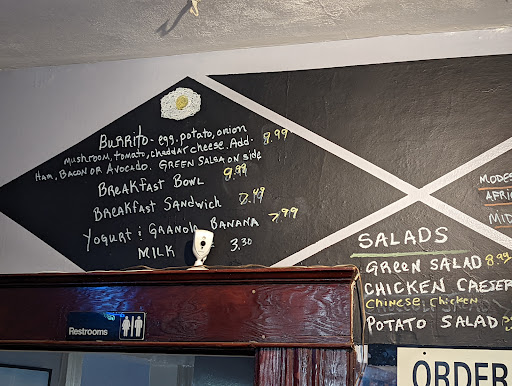 Burrito - egg, potato, onion 8.99
mushroom, tomato, cheddar cheese. Add.
Ham, Bacon or Avocado. Green Salsa on side
Breakfast Bowl 9.99
Breakfast Sandwich
Yogurt & Granola Banana 7.99
Milk 3.30
Restrooms
SALADS
GREEN SALAD 8.99
CHICKEN CAESER
Chinese Chicken
POTATO SALAD
MODES
AFRI
MID
ORDER